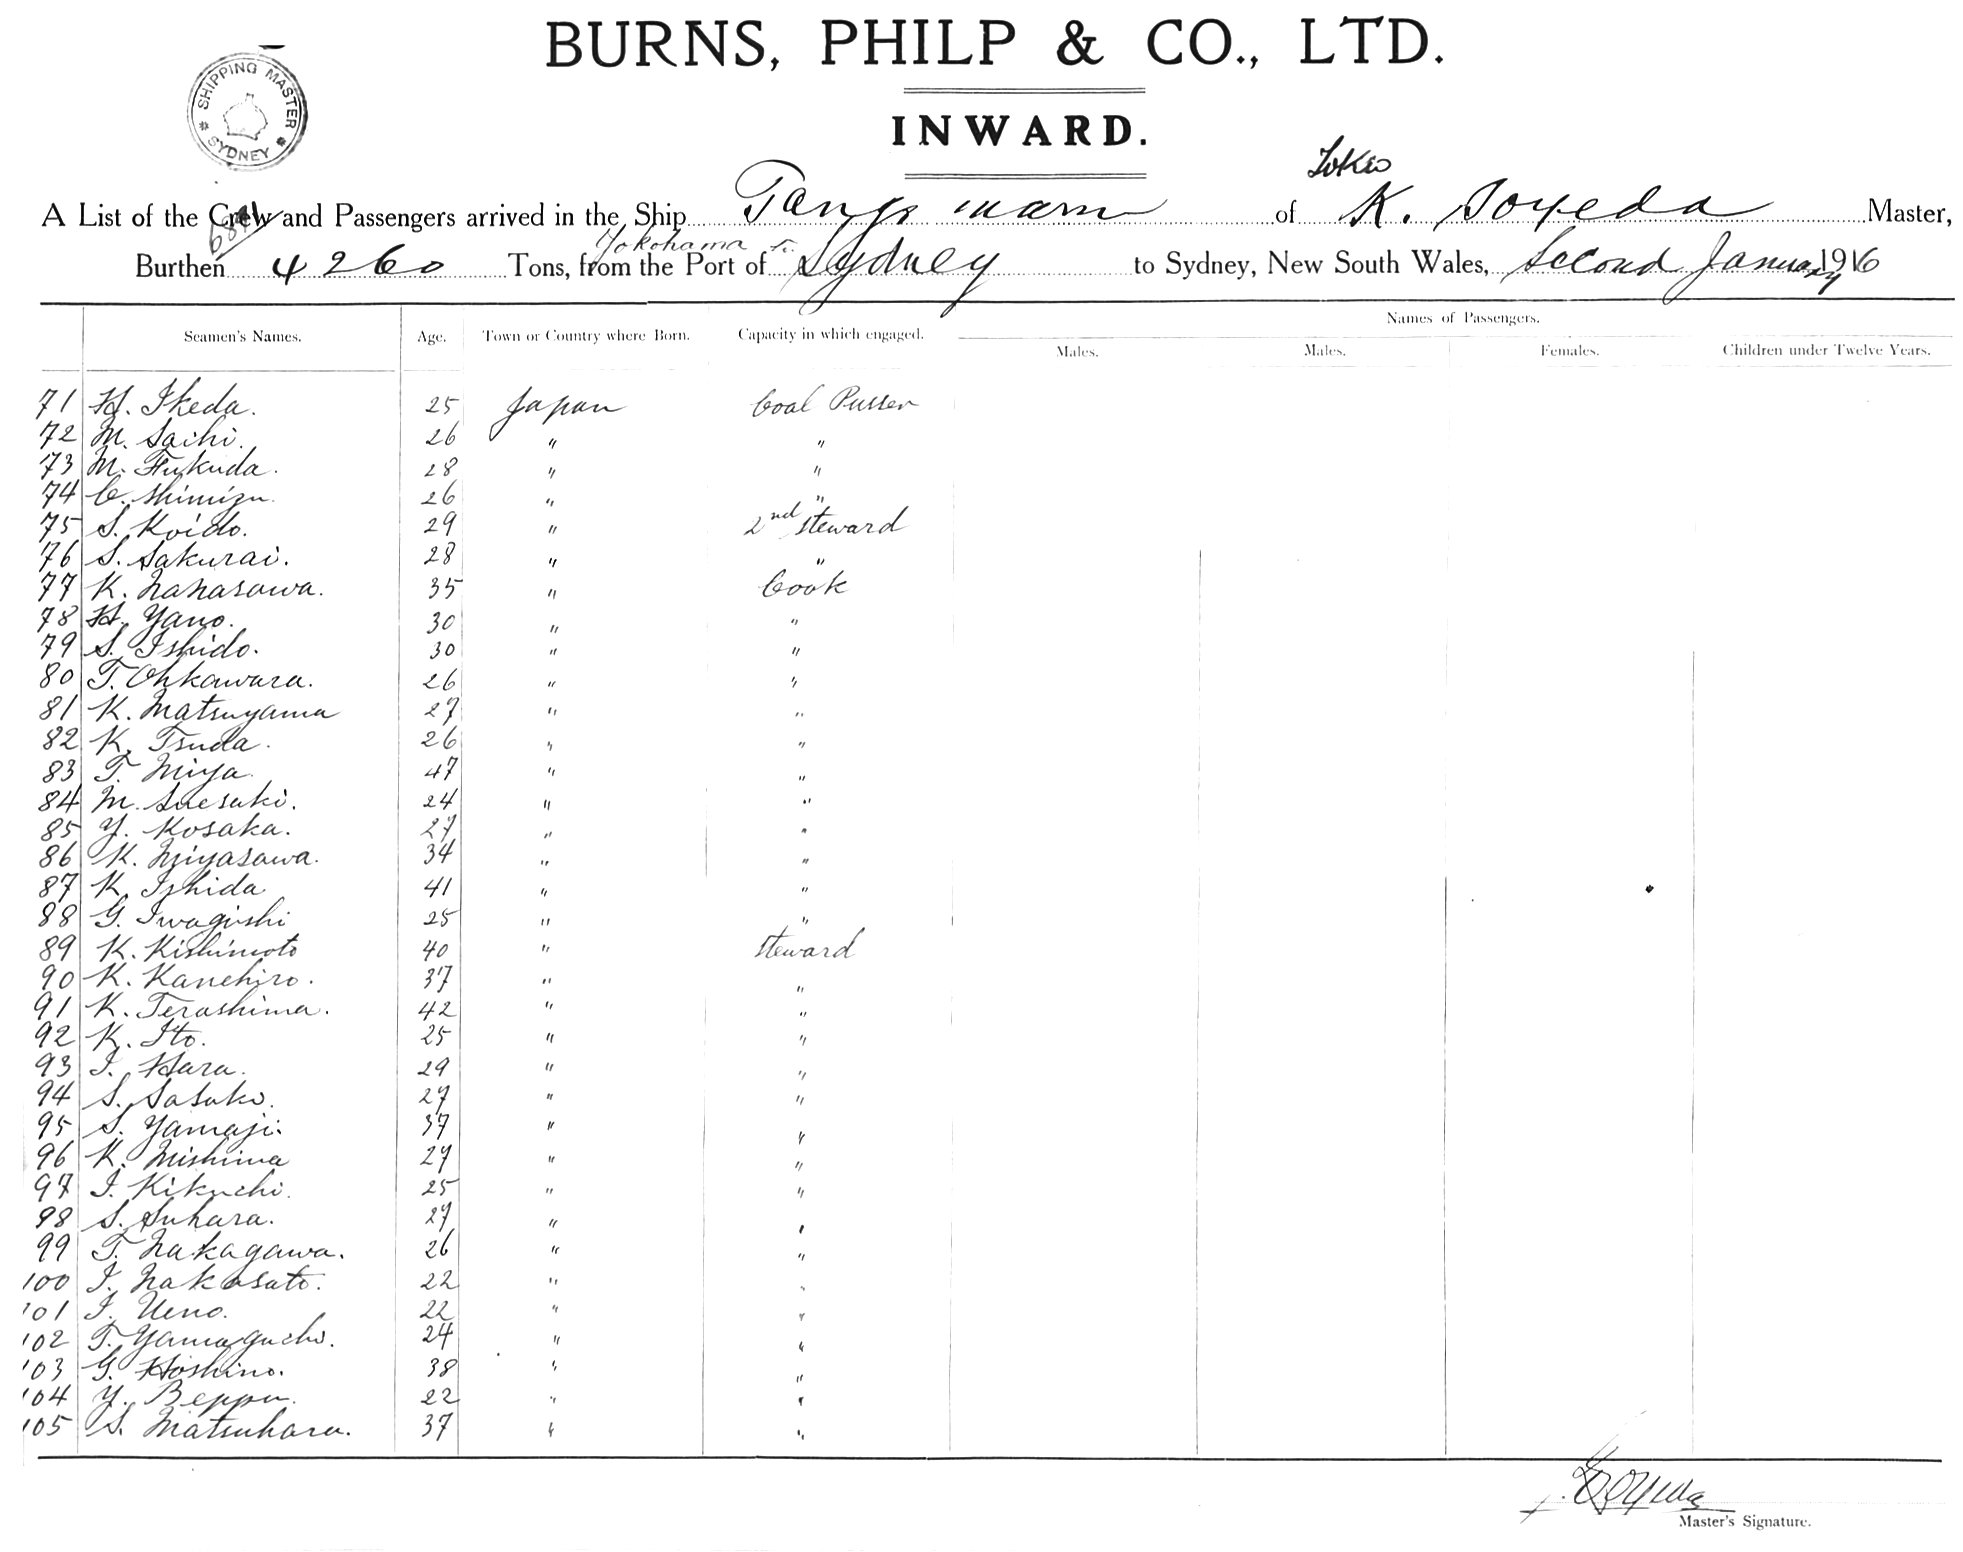 BURNS, PHILP & CO., LTD.
SHIPPING MASTER
SYDNEY
INWARD.
Tokio
A List of the Crew and Passengers arrived in the Ship Tango maru of K. Soyeda Master,
Yokohama to
Burthen 4260 Tons, from the Port of Sydney to Sydney, New South Wales, Second January 1916
Names of Passengers.
Seamen's Names. Age. Town or Country where Born. Capacity in which engaged. Males. Males. Females. Children under Twelve Years.
71 H. Ikeda. 25 Japan Coal Passer
72 M. Saihi. 26 " "
73 M. Fukuda. 28 " "
74 C. Shimizu. 26 " "
75 S. Koido. 29 " 2nd steward
76 S. Sakurai. 28 " "
77 K. Nanasawa. 35 " Cook
78 H. Yano. 30 " "
79 S. Ishido. 30 " "
80 T. Ohkawara. 26 " "
81 K. Matsuyama 27 " "
82 K. Tsuda. 26 " "
83 T. Miya. 47 " "
84 M. Suesaki. 24 " "
85 Y. Kosaka. 27 " "
86 K. Miyasawa. 34 " "
87 K. Ishida 41 " "
88 G. Iwagishi 25 " "
89 K. Kishimoto 40 " steward
90 K. Kanehiro. 37 " "
91 K. Terashima. 42 " "
92 K. Ito. 25 " "
93 I. Hara. 29 " "
94 S. Sasaki. 27 " "
95 S. Yamaji. 37 " "
96 K. Mishima 27 " "
97 I. Kikuchi. 25 " "
98 S. Suhara. 27 " "
99 T. Nakagawa. 26 " "
100 I. Nakasato. 22 " "
101 I. Ueno. 22 " "
102 T. Yamaguchi. 24 " "
103 G. Hoshino. 38 " "
104 Y. Beppu. 22 " "
105 S. Matsuhara. 37 " "
K. Soyeda
Master's Signature.